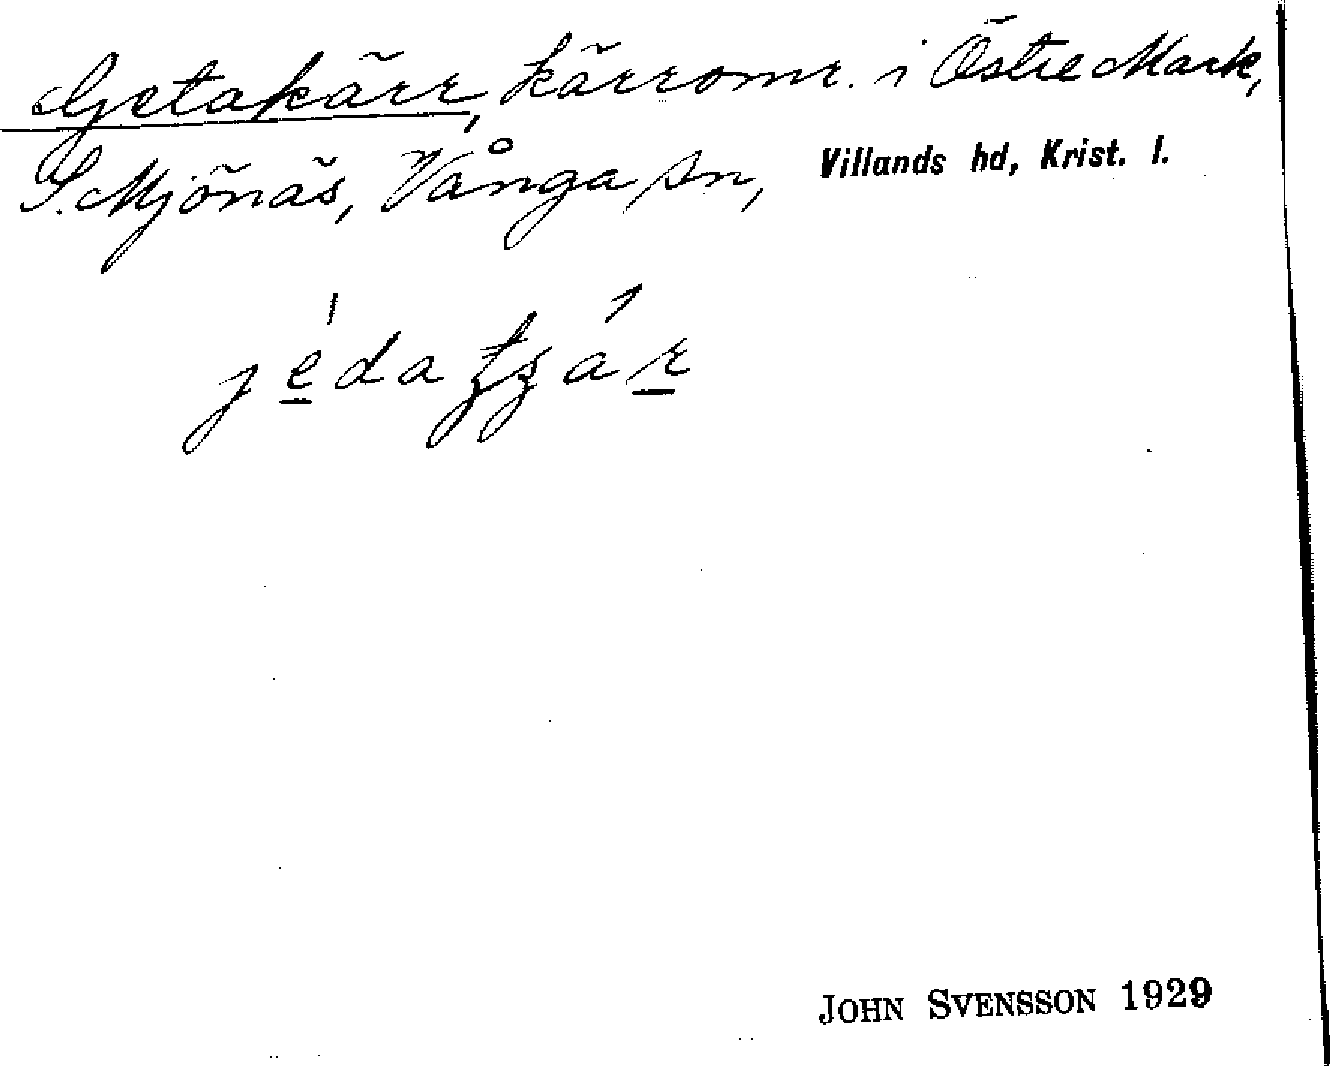 Getakärr, kärromr. i Östre Mark,
S. Mjönäs, Vånga sn, Villands hd, Krist. l.
JOHN SVENSSON 1929